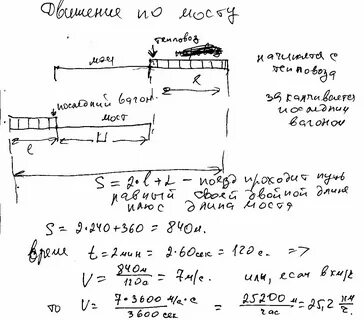 Движение по мосту
тепловоз
мост
l
начинается с
тепловоза
последний вагон
мост
заканчивается
последним
вагоном
l
S = 2·l + L – поезд проходит путь
равный своей двойной длине
плюс длина моста
S = 2·240 + 360 = 840м.
Время t = 2мин = 2·60сек = 120с. =>
V = 840м / 120с = 7м/с. или, если в км/ч
то V = 7·3600 м/с·с / 3600 сек = 25200 м / час = 25,2 км/ч.